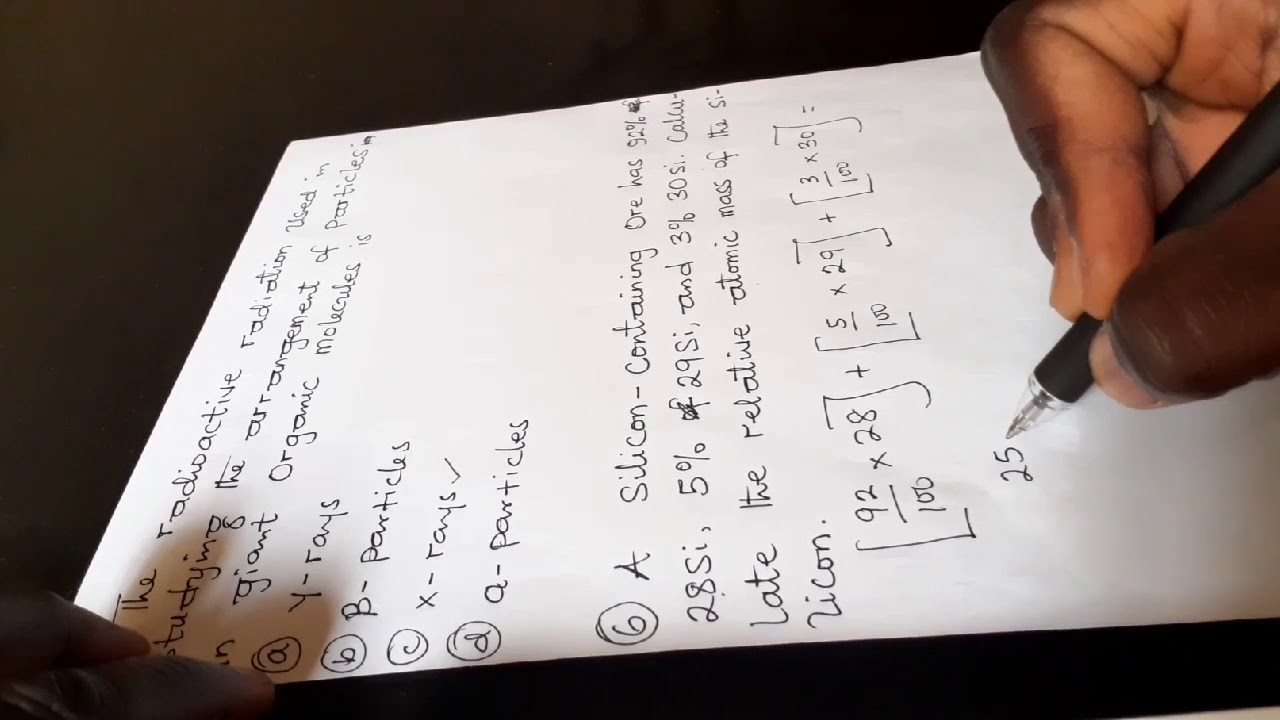 The radioactive radiation used in
studying the arrangement of particles in
giant organic molecules is
a γ-rays
b B-particles
c X-rays ✓
d a-particles
6 A Silicon-Containing Ore has 92% of
28Si, 5% of 29Si, and 3% 30Si. Calcu-
late the relative atomic mass of the si-
licon.
[92/100 x 28] + [5/100 x 29] + [3/100 x 30] =
25